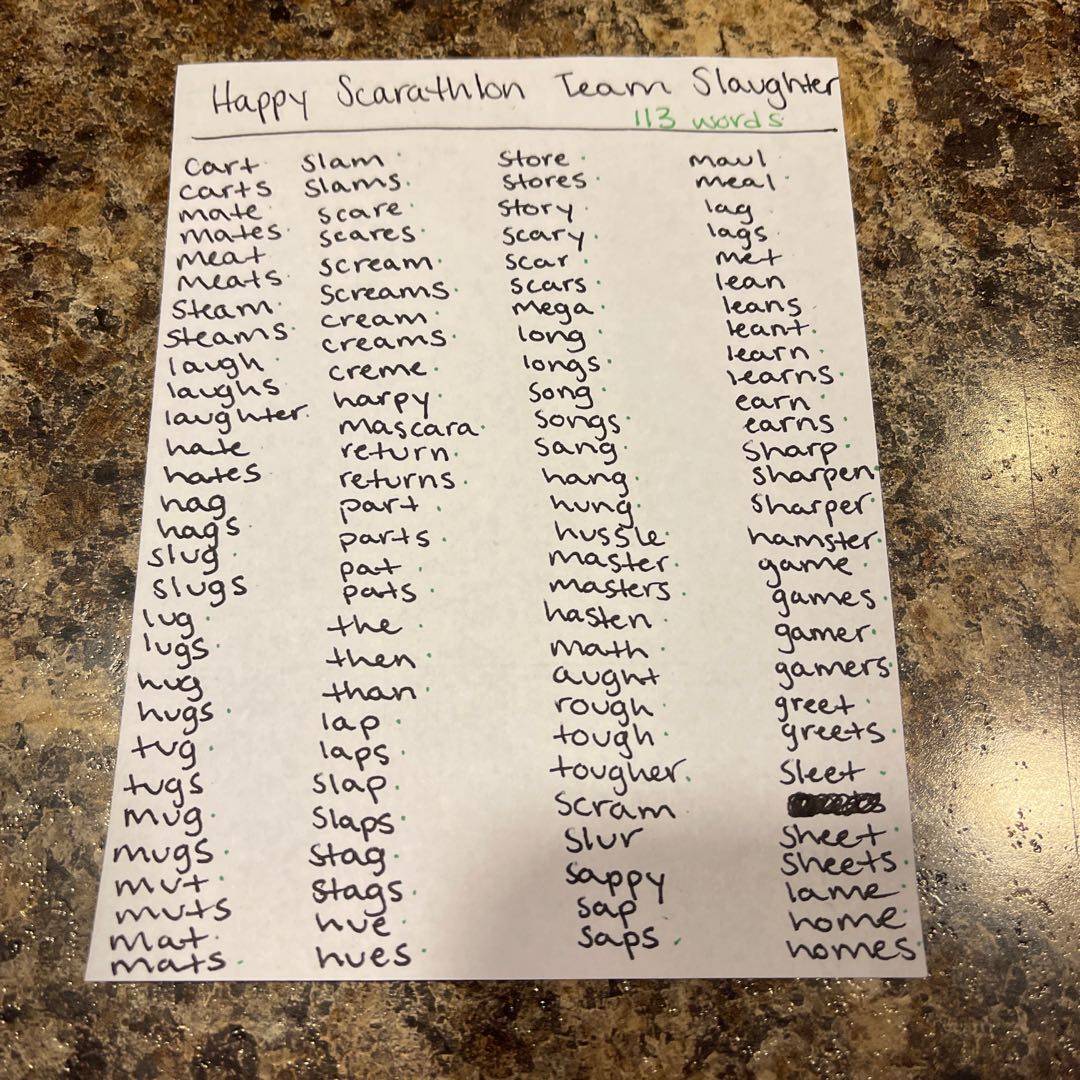 Happy Scarathlon Team Slaughter
113 words
cart
carts
mate
mates
meat
meats
steam
steams
laugh
laughs
laughter
hate
hates
hag
hags
slug
slugs
lug
lugs
hug
hugs
tug
tugs
mug
mugs
mut
muts
mat
mats
slam
slams
scare
scares
scream
screams
cream
creams
creme
harpy
mascara
return
returns
part
parts
pat
pats
the
then
than
lap
laps
slap
slaps
stag
stags
hue
hues
store
stores
story
scary
scar
scars
mega
long
longs
song
songs
sang
hang
hung
hussle
master
masters
hasten
math
aught
rough
tough
tougher
scram
slur
sappy
sap
saps
maul
meal
lag
lags
met
lean
leans
leant
learn
learns
earn
earns
sharp
sharpen
sharper
hamster
game
games
gamer
gamers
greet
greets
sleet
sheet
sheets
lame
home
homes